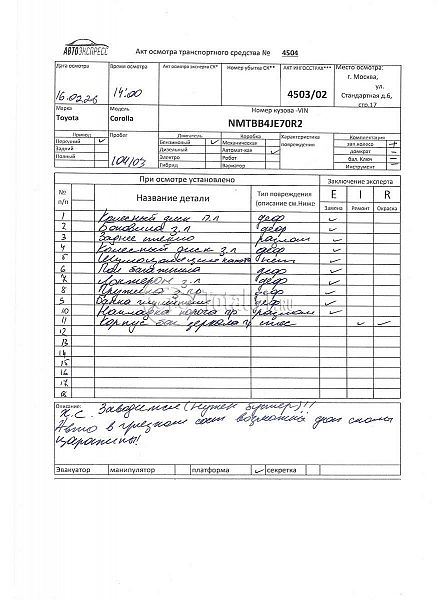 АВТОЭКСПРЕСС
Акт осмотра транспортного средства № 4504
Дата осмотра Время осмотра Акт осмотра эксперта СК* Номер убытка СК** АКТ ИНГОССТРАХ*** Место осмотра:
г. Москва,
ул.
Стандартная д.6,
стр.17
14:00 4503/02
Марка Модель Номер кузова -VIN
Toyota Corolla NMTBB4JE70R2
Привод Пробег Двигатель Коробка Характеристика повреждения Комплектация
Передний ✓ Бензиновый ✓ Механическая зап.колесо +
Задний Дизельный Автомат-кая ✓ домкрат –
Полный Электро Робот бал. Ключ –
Гибрид Вариатор Инструмент –
104103
При осмотре установлено Заключение эксперта
№ п/п Название детали Тип повреждения (описание см.Ниже E I R
Замена Ремонт Окраска
1 Колесный диск П.Л деф ✓
2 Боковина З.Л дефор ✓
3 Заднее стекло разлом ✓
4 Колесный диск З.Л деф ✓
5
6 Пол багажника деф ✓
7 Лонжерон З.Л деф ✓
8 Пружина З.пр деф ✓
9 деф ✓
10 Накладка порога пр разлом ✓
11 Корпус бок зеркала пр ✓ ✓
12
13
14
15
16
17
18
Описание: Х.С. Заводится (нужен бустер)!!
Авто в грязном сост возможны доп сколы
царапины!
Эвакуатор манипулятор платформа ✓ секретка